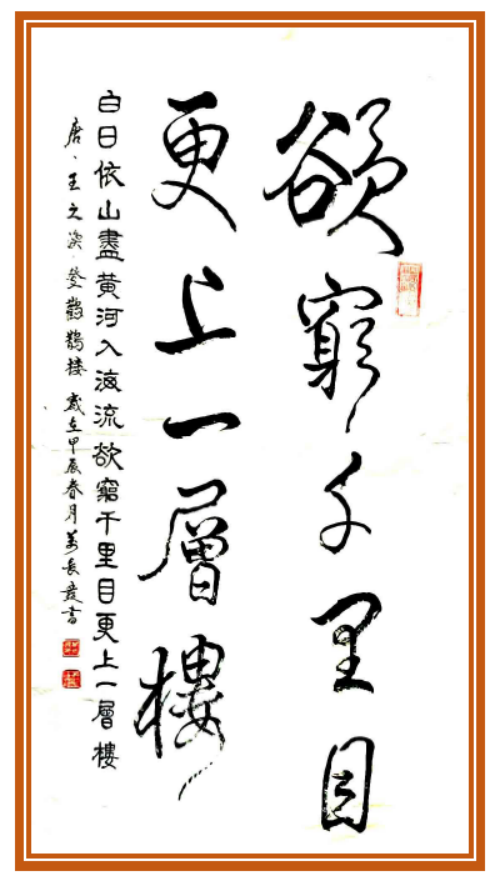 欲窮千里目
更上一層樓
白日依山盡黄河入海流欲窮千里目更上一層樓
唐、王之渙·登鸛鵲楼 歲在甲辰春月 萬長 書